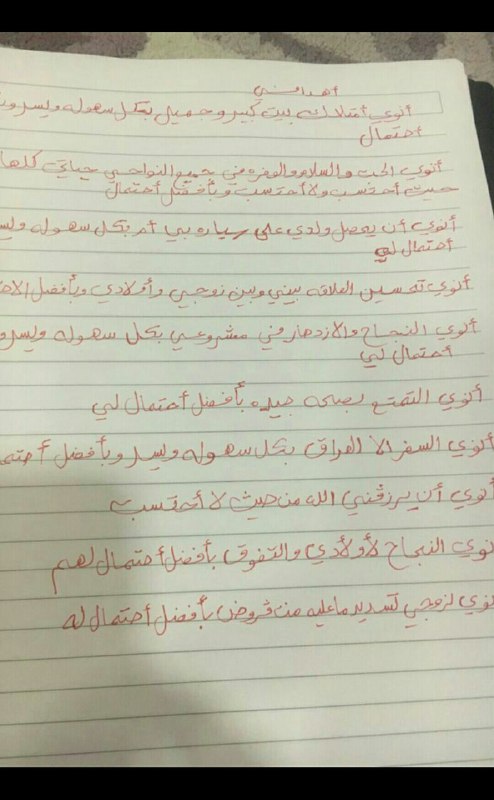 أهدافي
أنوي أمتلاك بيت كبير وجميل بكل سهوله ويسر
أحتمال
أنوي الحب والسلام والوفره في جميع النواحي حياتي كلها
حيث أحتسب ولا أحتسب وبأفضل أحتمال
أنوي أن يحصل ولدي على سياره بي أم بكل سهوله
أحتمال لي
أنوي تحسين العلاقه بيني وبين زوجي وأولادي وبأفضل
أنوي النجاح والازدهار في مشروعي بكل سهوله ويسر
أحتمال لي
أنوي التمتع بصحه جيده بأفضل أحتمال لي
أنوي السفر الا العراق بكل سهوله ويسر وبأفضل
أنوي أن يرزقني الله من حيث لا أحتسب
نوي النجاح لأولادي والتفوق بأفضل أحتمال لهم
نوي لزوجي تسديد ما عليه من قروض بأفضل أحتمال له